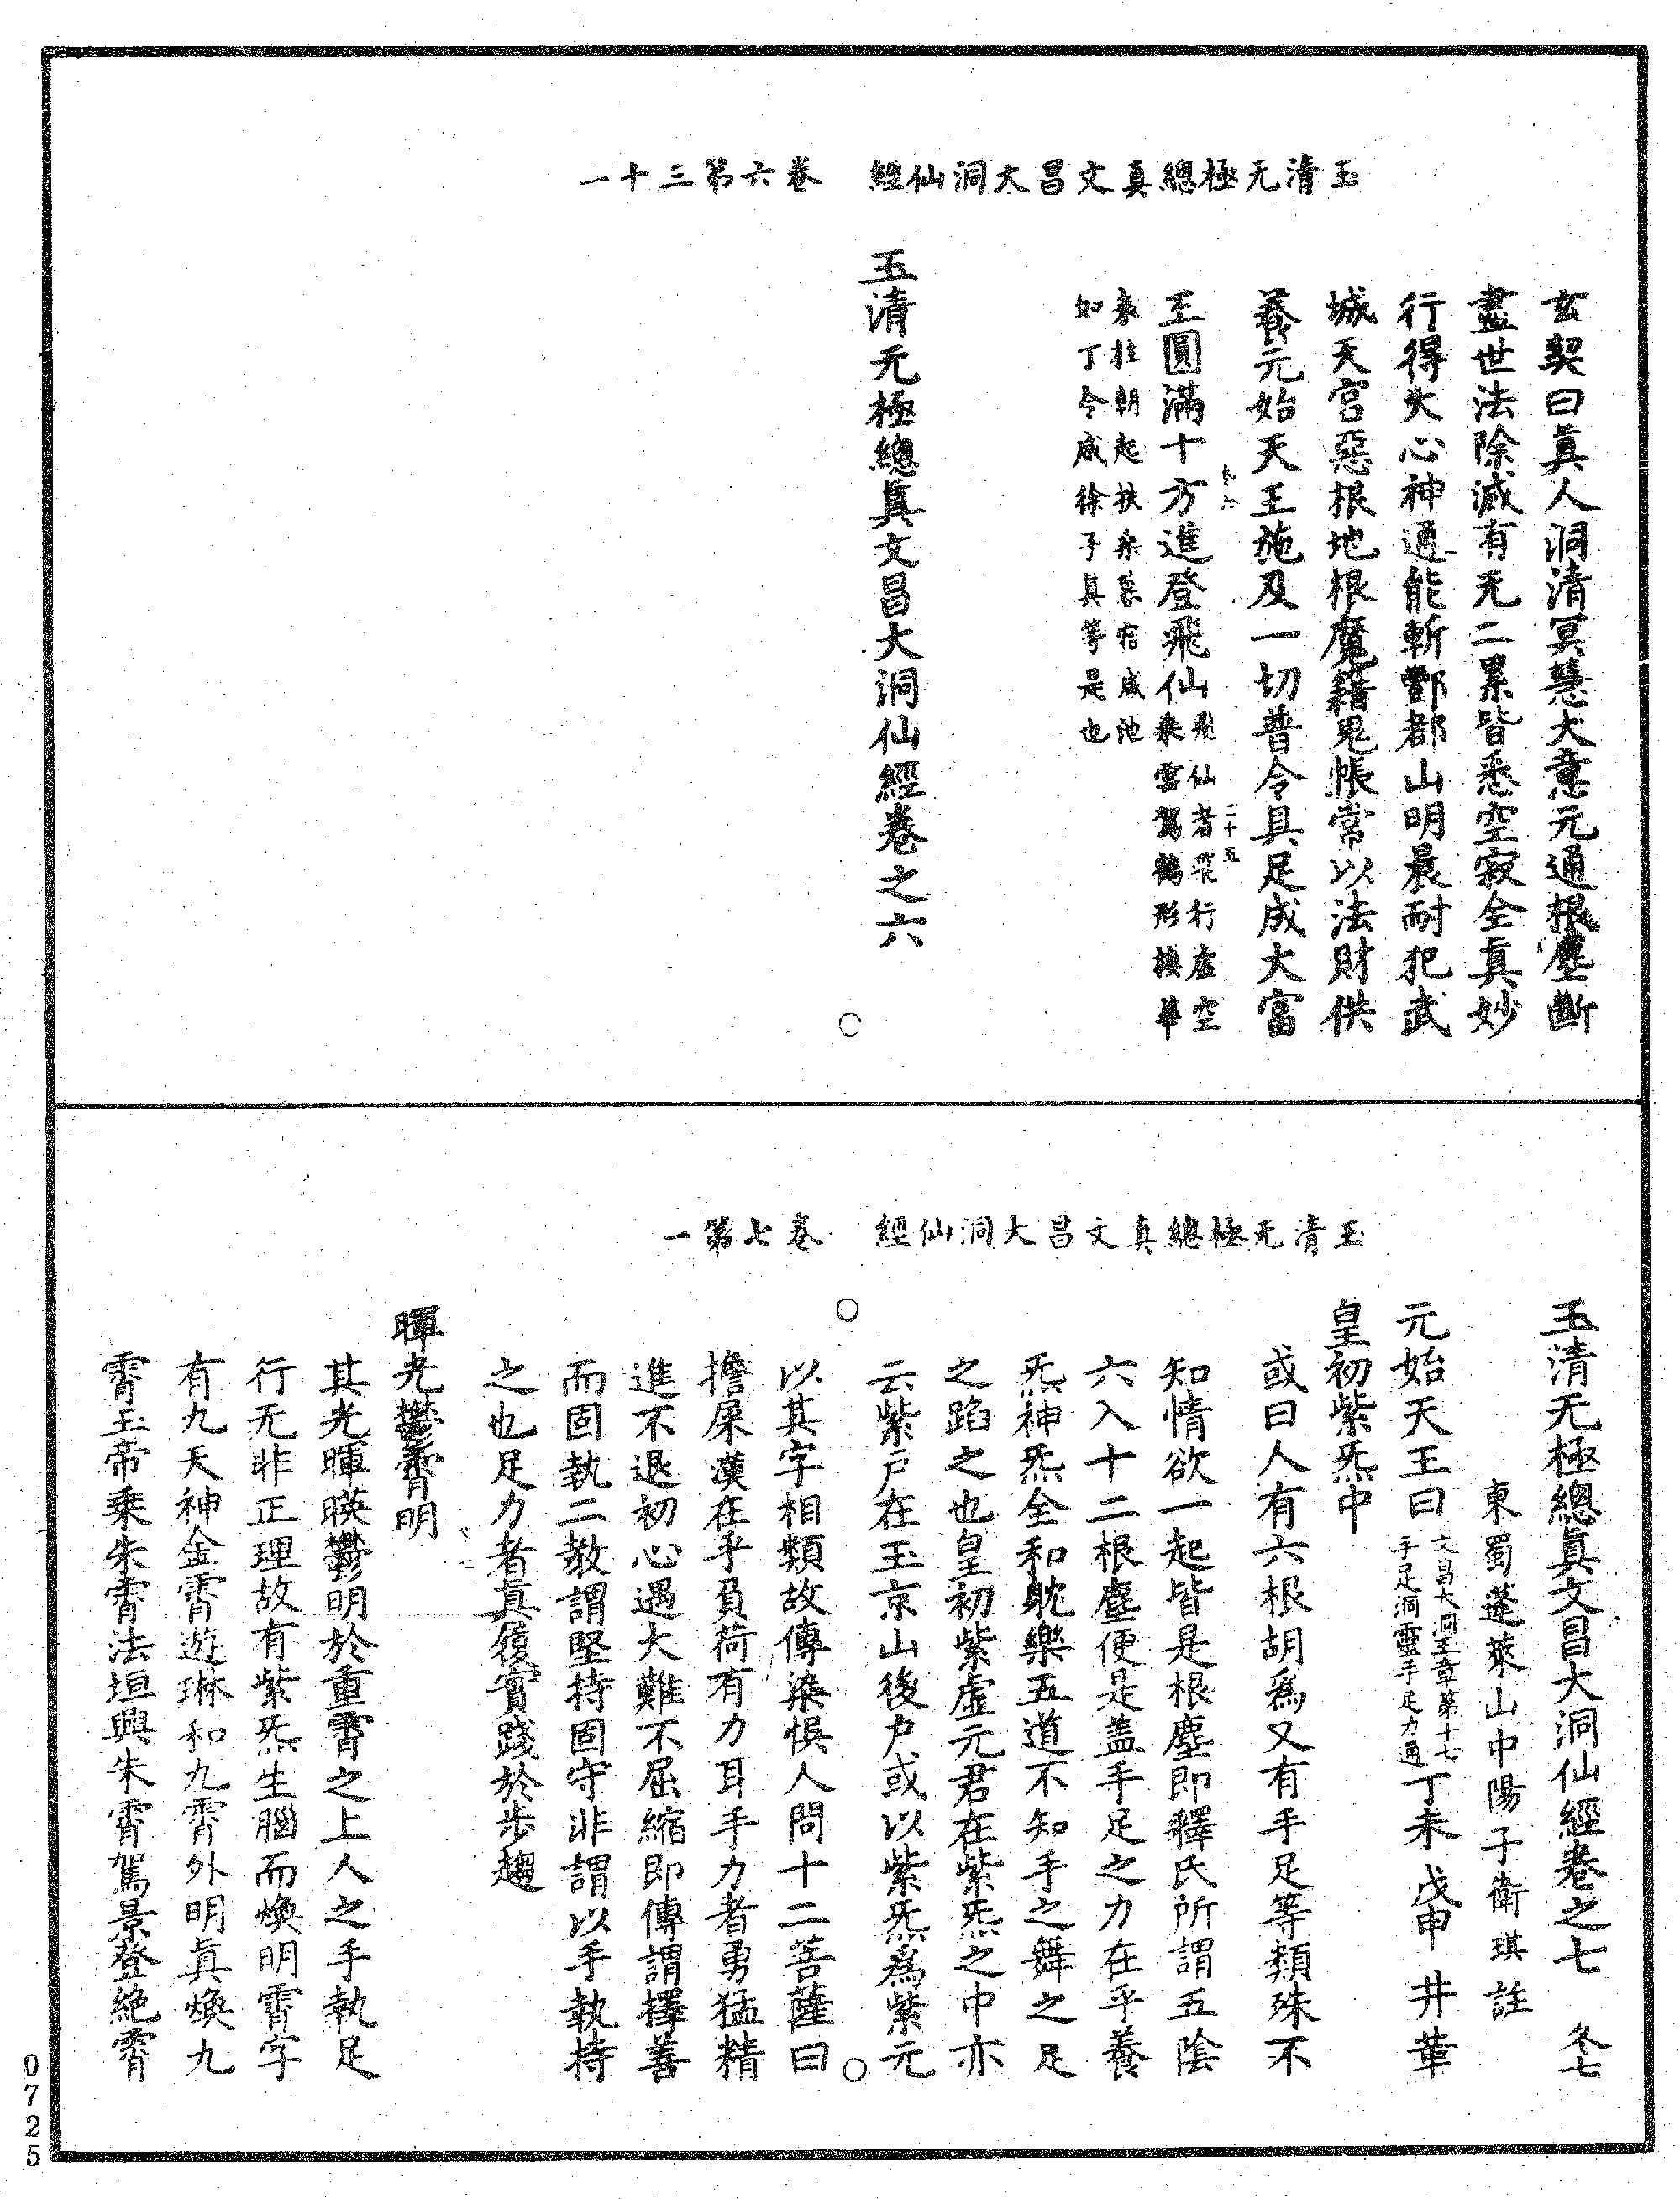 玉清无極總真文昌大洞仙經 卷六第三十一
玄契曰眞人洞清冥慧大意元通根塵斷
盡世法除滅有无二累皆悉空寂全眞妙
行得大心神通能斬酆都山明晨耐犯武
城天宮惡根地根魔籍鬼帳常以法財供
養元始天王施及一切普令具足成大富
二十五
王圓滿十方進登飛仙飛仙者飛行虛空
乘雲駕鶴形換華
表壯朝起扶桑暮宿咸池
如丁令威徐子眞等是也
玉清无極總眞文昌大洞仙經卷之六
玉清无極總真文昌大洞仙經 卷七第一
玉清无極總眞文昌大洞仙經卷之七 冬七
東蜀蓬萊山中陽子衛琪註
元始天王曰文昌大洞玉章第十七
手足洞靈手足力通丁未 戊申 井華
皇初紫炁中
或曰人有六根胡爲又有手足等類殊不
知情欲一起皆是根塵即釋氏所謂五陰
六入十二根塵便是盖手足之力在乎養
炁神炁全和躭樂五道不知手之舞之足
之蹈之也皇初紫虛元君在紫炁之中亦
云紫戸在玉京山後户或以紫炁爲紫元
以其字相類故傳染悞人問十二菩薩曰
擔屎漢在乎負荷有力耳手力者勇猛精
進不退初心遇大難不屈縮即傳謂擇善
而固執二教謂堅持固守非謂以手執持
之也足力者眞履實踐於步趨
暉光鬱霄明
其光暉暎鬱明於重霄之上人之手執足
行无非正理故有紫炁生腦而煥明霄字
有九天神金霄遊琳和九霄外明眞煥九
霄玉帝乘朱霄法垣興朱霄駕景登絶霄
0725